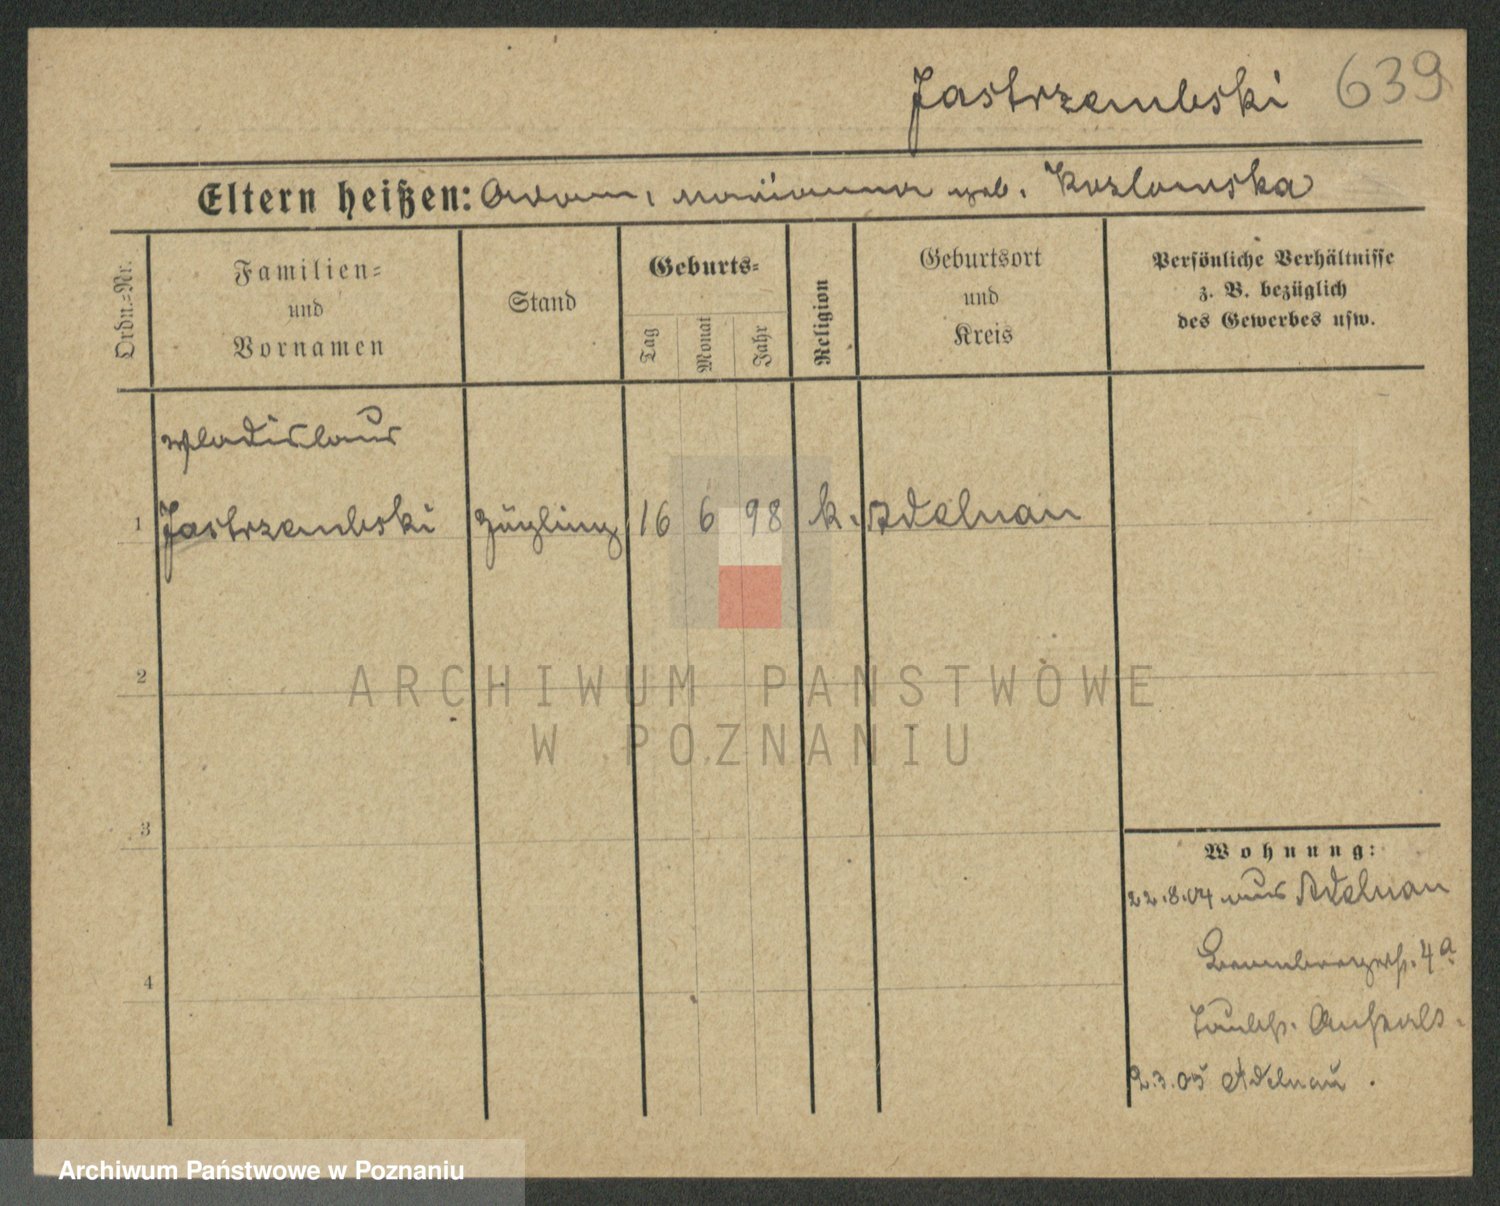 Jastrzembski 639
Eltern heißen: Adam, Marianna geb. Kozlowska
Ordn.=Nr.
Familien=
und
Vornamen
Stand
Geburts=
Tag
Monat
Jahr
Religion
Geburtsort
und
Kreis
Persönliche Verhältnisse
z. B. bezüglich
des Gewerbes usw.
Wladislaus
1 Jastrzembski Zögling 16 6 98 k. Adelnau
2
ARCHIWUM PAŃSTWOWE
W POZNANIU
3
4
Wohnung:
22.8.04 aus Adelnau
Brombergerstr. 4a
Taubst. Anstalt
2.3.05 Adelnau.
Archiwum Państwowe w Poznaniu